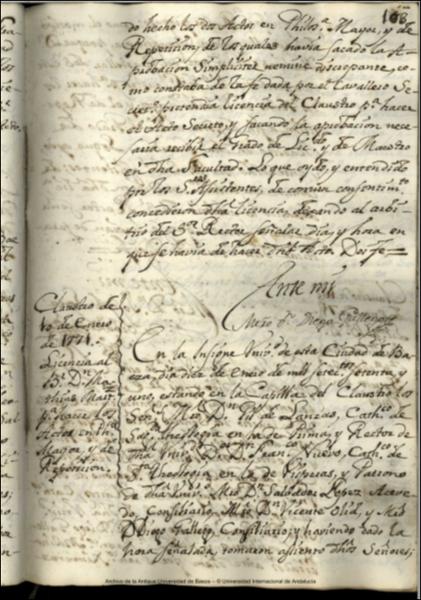 103
do hecho los dos Actos en Philos.ª Mayor, y de
Repeticion, de los quales havia sacado la A-
probacion Simpliciter nemine discrepante, co-
mo constaba de la fe dada por el Cavallero Se-
cret.º pretendia licencia del Claustro p.ª hacer
el Acto Secreto, y sacando la aprobacion nece-
saria recibir el Grado de Lic.do y de Maestro
en dha Facultad. Lo que oydo, y entendido
por los S.res Asistentes, de comun consentim.to
concedieron dha licencia, dejando al arbi-
trio del S.r Rector señalar dia, y hora en
que se havia de hacer dho Acto. Doi fe=
Ante mi
Mrô D.n Diego
Claustro de
10 de Enero
de 1771.
Licencia al
B.r D.n
Mathias Mar.
p.ª hacer los
Actos en Phi.
Mayor, y de
Repeticion.
En la Insigne Univ.d de esta Ciudad de Ba-
eza, dia diez de Enero de mil setec.s setenta y
uno, estando en la Capilla del Claustro los
Señ.s Mrô D.n de Lanzas, Cath.co de
Sag.da Theologia en la de Prima, y Rector de
dha Univ.d D.r D.n Fran.co Nuevo, Cath.co de
S.ta Theologia en la de Visperas, y Patrono
de dha Univ.d Mrô D.n Salvador Lopez Aceve-
do, Consiliario, Mrô D.n Vicente Olid, y Mrô
D.n Diego Consiliario; y haviendo dado la
hora señalada tomaron assiento dhos Señores;
Archivo de la Antigua Universidad de Baeza – © Universidad Internacional de Andalucía